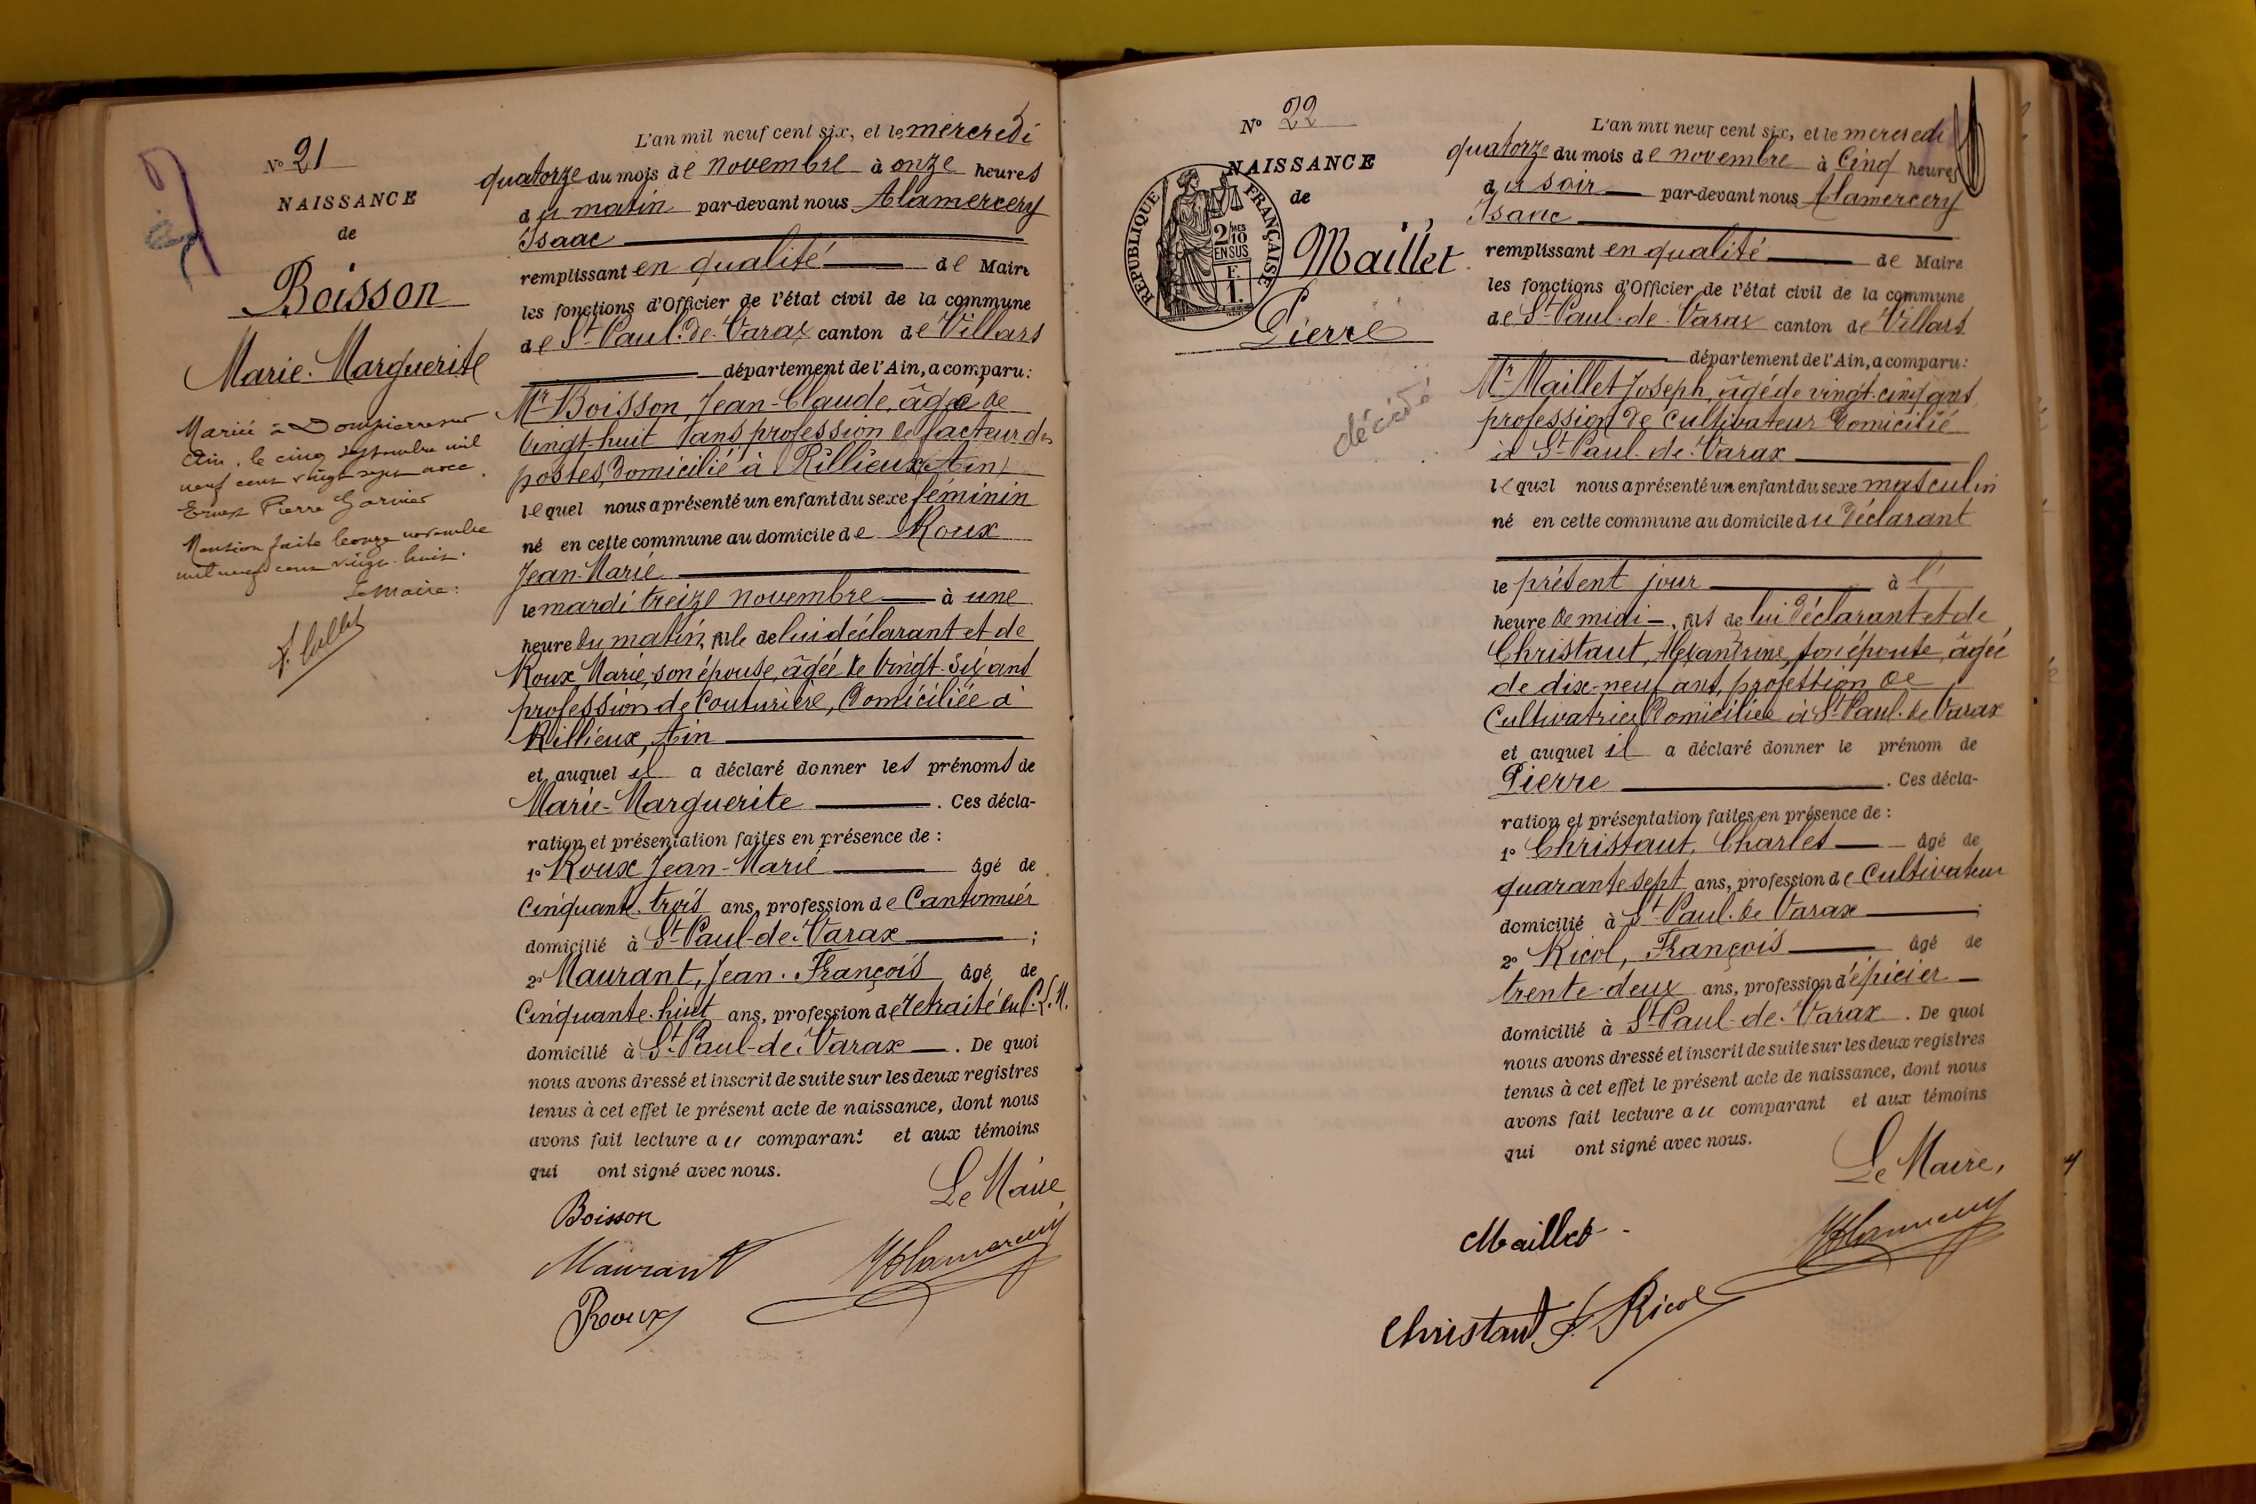 Nº 21
NAISSANCE
de
Boisson
Marie-Marguerite
Mariée à Dompierre sur
Ain, le cinq septembre mil
neuf cent vingt sept avec
Ernest Pierre Garnier
Mention faite le onze novembre
mil neuf cent vingt-huit.
Le Maire:
L'an mil neuf cent six, et le mercredi
quatorze du mois de novembre à onze heures
du matin par-devant nous Alamercery
Isaac
remplissant en qualité de Maire
les fonctions d'Officier de l'état civil de la commune
de St-Paul-de-Varax canton de Villars
département de l'Ain, a comparu:
Mr Boisson, Jean-Claude, âgé de
vingt-huit ans, profession de facteur des
postes, domicilié à Rillieux (Ain)
lequel nous a présenté un enfant du sexe féminin
né en cette commune au domicile de Roux
Jean-Marie
le mardi treize novembre à une
heure du matin, fille de lui déclarant et de
Roux, Marie, son épouse, âgée de vingt-six ans
profession de Couturière, domiciliée à
Rillieux, Ain
et auquel il a déclaré donner les prénoms de
Marie-Marguerite. Ces décla-
ration et présentation faites en présence de :
1º Roux Jean-Marie âgé de
Cinquante-trois ans, profession de Cantonnier
domicilié à St-Paul-de-Varax ;
2º Maurant, Jean-François âgé de
Cinquante-huit ans, profession de retraité du P.L.M.
domicilié à St-Paul-de-Varax. De quoi
nous avons dressé et inscrit de suite sur les deux registres
tenus à cet effet le présent acte de naissance, dont nous
avons fait lecture au comparant et aux témoins
qui ont signé avec nous.
Le Maire
Boisson
Maurant
Alamercery
Roux
Nº 22
NAISSANCE
de
RÉPUBLIQUE FRANÇAISE
2/10 EN SUS
F.
1.
Maillet
Pierre
décédé
L'an mil neuf cent six, et le mercredi
quatorze du mois de novembre à Cinq heures
du soir par-devant nous Alamercery
Isaac
remplissant en qualité de Maire
les fonctions d'Officier de l'état civil de la commune
de St-Paul-de-Varax canton de Villars
département de l'Ain, a comparu:
Mr Maillet Joseph, âgé de vingt-cinq ans
profession de cultivateur domicilié
à St-Paul-de-Varax
lequel nous a présenté un enfant du sexe masculin
né en cette commune au domicile du déclarant
le présent jour à l'
heure de midi, fils de lui déclarant et de
Christaut, Alexandrine, son épouse, âgée
de dix-neuf ans, profession de
Cultivatrice domiciliée à St-Paul-de-Varax
et auquel il a déclaré donner le prénom de
Pierre. Ces décla-
ration et présentation faites en présence de :
1º Christaut, Charles âgé de
quarante sept ans, profession de Cultivateur
domicilié à St-Paul-de-Varax ;
2º Ricol, François âgé de
trente-deux ans, profession d'épicier
domicilié à St-Paul-de-Varax. De quoi
nous avons dressé et inscrit de suite sur les deux registres
tenus à cet effet le présent acte de naissance, dont nous
avons fait lecture au comparant et aux témoins
qui ont signé avec nous.
Le Maire,
Maillet
Alamercery
Christaut F. Ricol